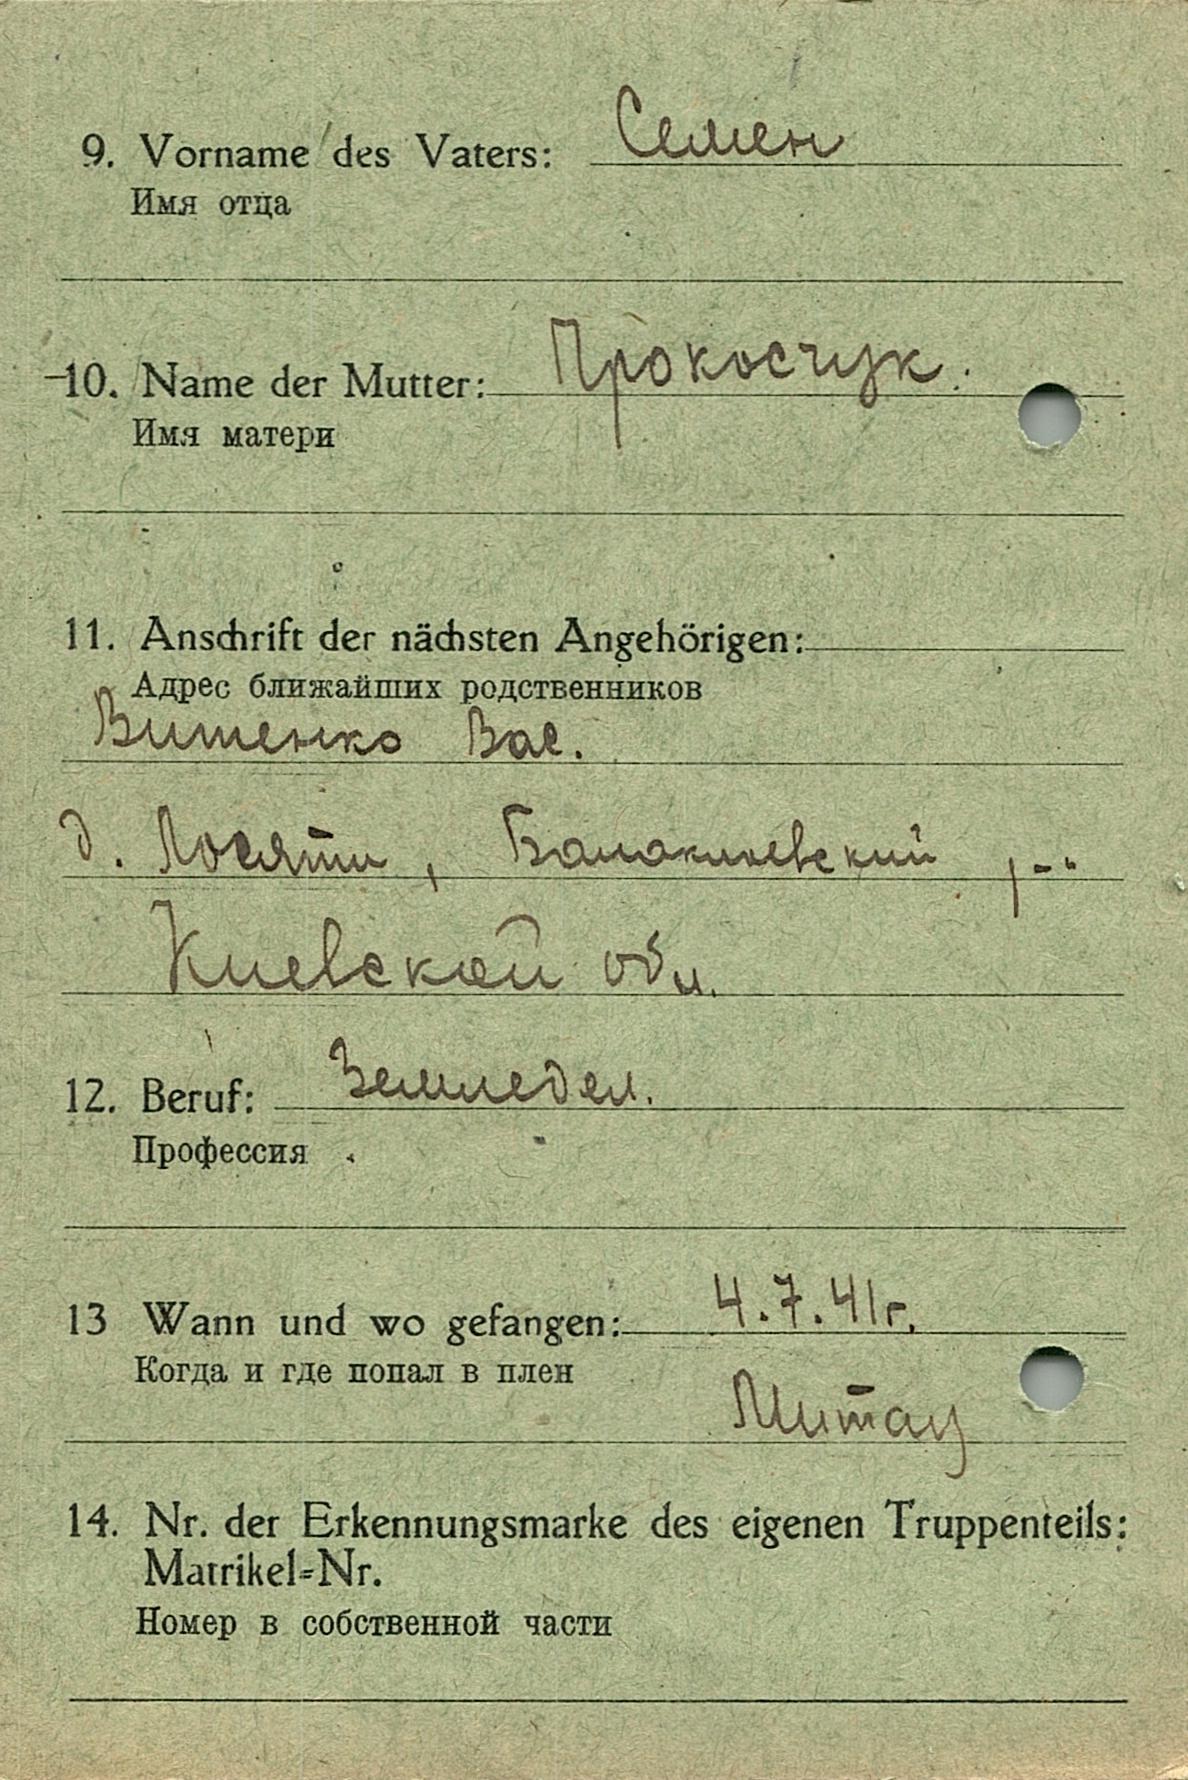 9. Vorname des Vaters: Семен
Имя отца
10. Name der Mutter: Прокосчук.
Имя матери
11. Anschrift der nächsten Angehörigen:
Адрес ближайших родственников
Витенко Вас.
д. Лосяти,
Киевской обл.
12. Beruf: Земледел.
Профессия
13 Wann und wo gefangen: 4.7.41г.
Когда и где попал в плен
Митау
14. Nr. der Erkennungsmarke des eigenen Truppenteils:
Matrikel-Nr.
Номер в собственной части